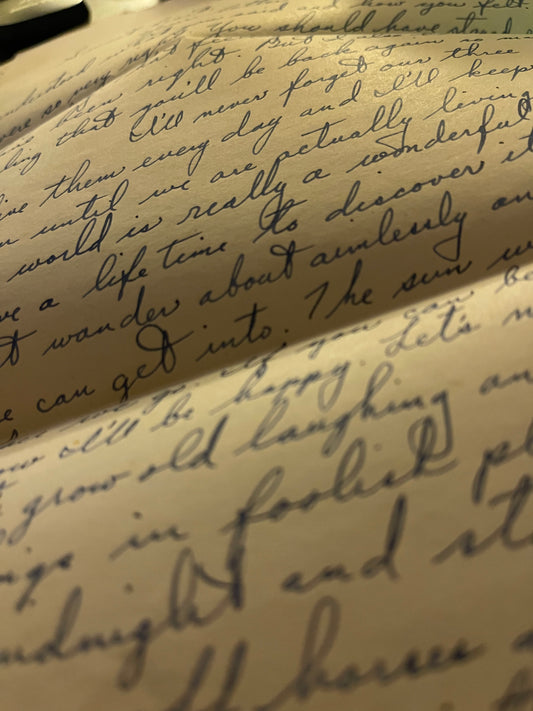 and how you felt.
so very right & you should have stood
been right. But
ling that you'll be back again
I'll never forget our three
live them every day and I'll keep
until we are actually living
world is really a wonderful
a life time to discover it
t wander about aimlessly an
e can get into. The sun w
you can be
ow I'll be happy. Let's n
grow old laughing an
ngs in foolish pl
idnight and st
horses